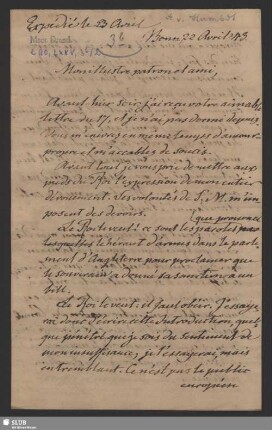 Expédié le 23 Avril
Bonn 20 Avril 43
Mon illustre patron et ami,
Assuet hier soir j'ai reçu votre aimable
lettre du 17, et je n'ai pas dormi depuis.
Vous m'avez en même temps d'amour
propre, et accablé de soucis.
Avant tout, je vous prie de mettre aux
pieds du Roi l'expression de mon entier
dévouement. Les volontés de S. M. m'im-
posent des devoirs.
Le Roi le veut! ce sont les paroles par
lesquelles le héraut d'armes dans le parle-
ment d'Angleterre pour proclamer que
le souverain a donné sa sanction à un
bill.
Le Roi le veut, il faut obéir. J'essaye-
rai donc d'écrire cette Introduction, quel-
que pénétré que je sois du sentiment de
mon insuffisance, je l'essayerai, mais
en tremblant. Ce n'est pas le public
SLUB